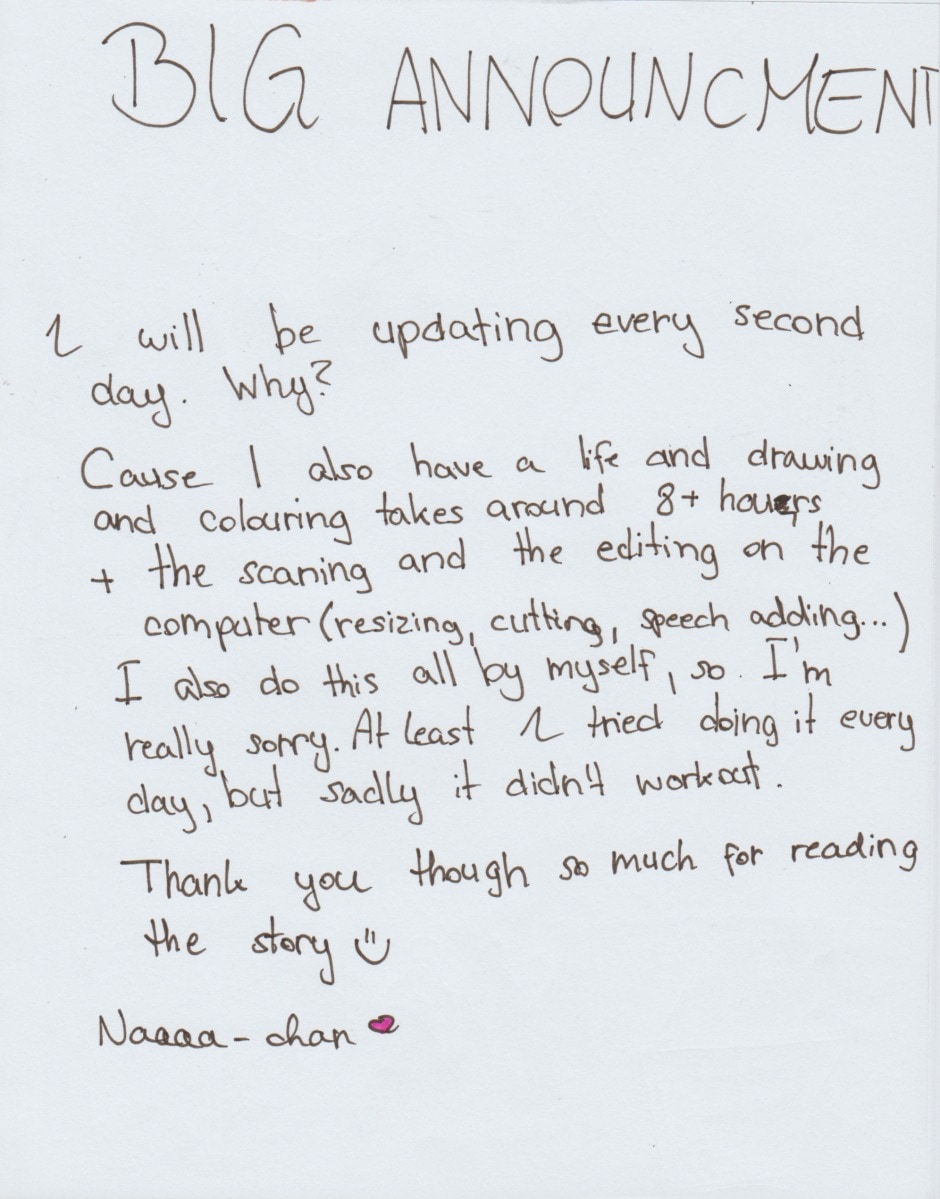 BIG ANNOUNCMENT
I will be updating every second
day. Why?
Cause I also have a life and drawing
and colouring takes around 8+ houers
+ the scaning and the editing on the
computer (resizing, cutting, speech adding...)
I also do this all by myself, so I'm
really sorry. At least I tried doing it every
day, but sadly it didn't workout.
Thank you though so much for reading
the story
Naaaa-chan